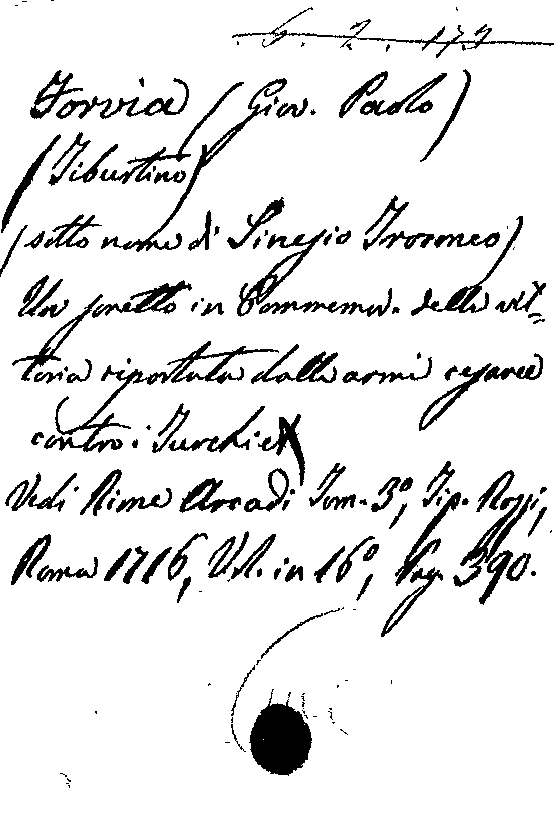 6. 2. 173
Torvia (Giov. Paolo)
(Tiburtino)
(sotto nome di Sinesio Trocmeo)
Un sonetto in Commemor. della vit=
toria riportata dalle armi cesaree
contro i Turchi
Vedi Rime Arcadi Tom. 3º, Tip. Rossi,
Roma 1716, Vol. in 16º, Pag. 390.